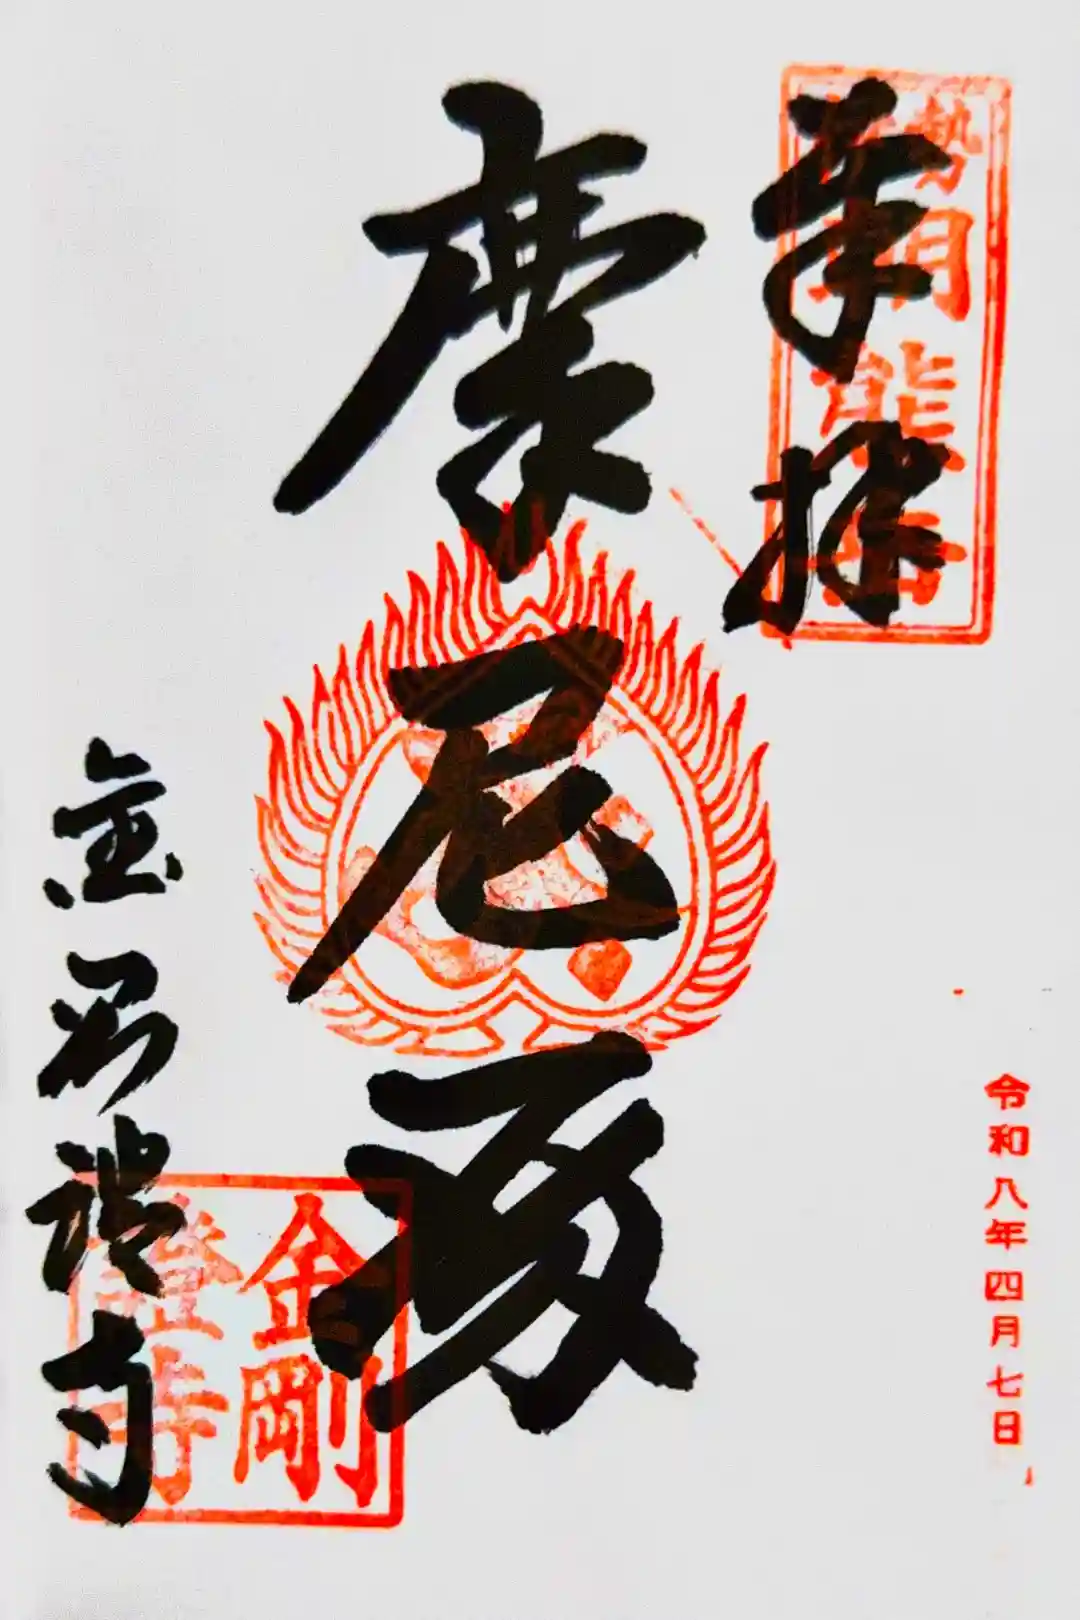 伊勢朝熊岳
奉拝
令和八年四月七日
摩尼殿
金剛證寺
金剛
證寺